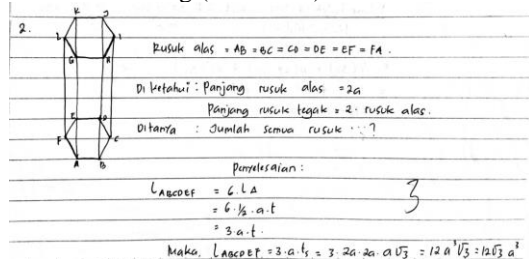 2.
K J
L I
G H
E D
F C
A B
Rusuk alas = AB = BC = CD = DE = EF = FA.
Diketahui : Panjang rusuk alas = 2a
Panjang rusuk tegak = 2 . rusuk alas.
Ditanya : Jumlah semua rusuk ...?
Penyelesaian :
LABCDEF = 6.L∆
= 6.½.a.t
= 3.a.t.
3
Maka, LABCDEF = 3.a.t₅ = 3.2a.2a.a√3 = 12a³√3 = 12√3 a³